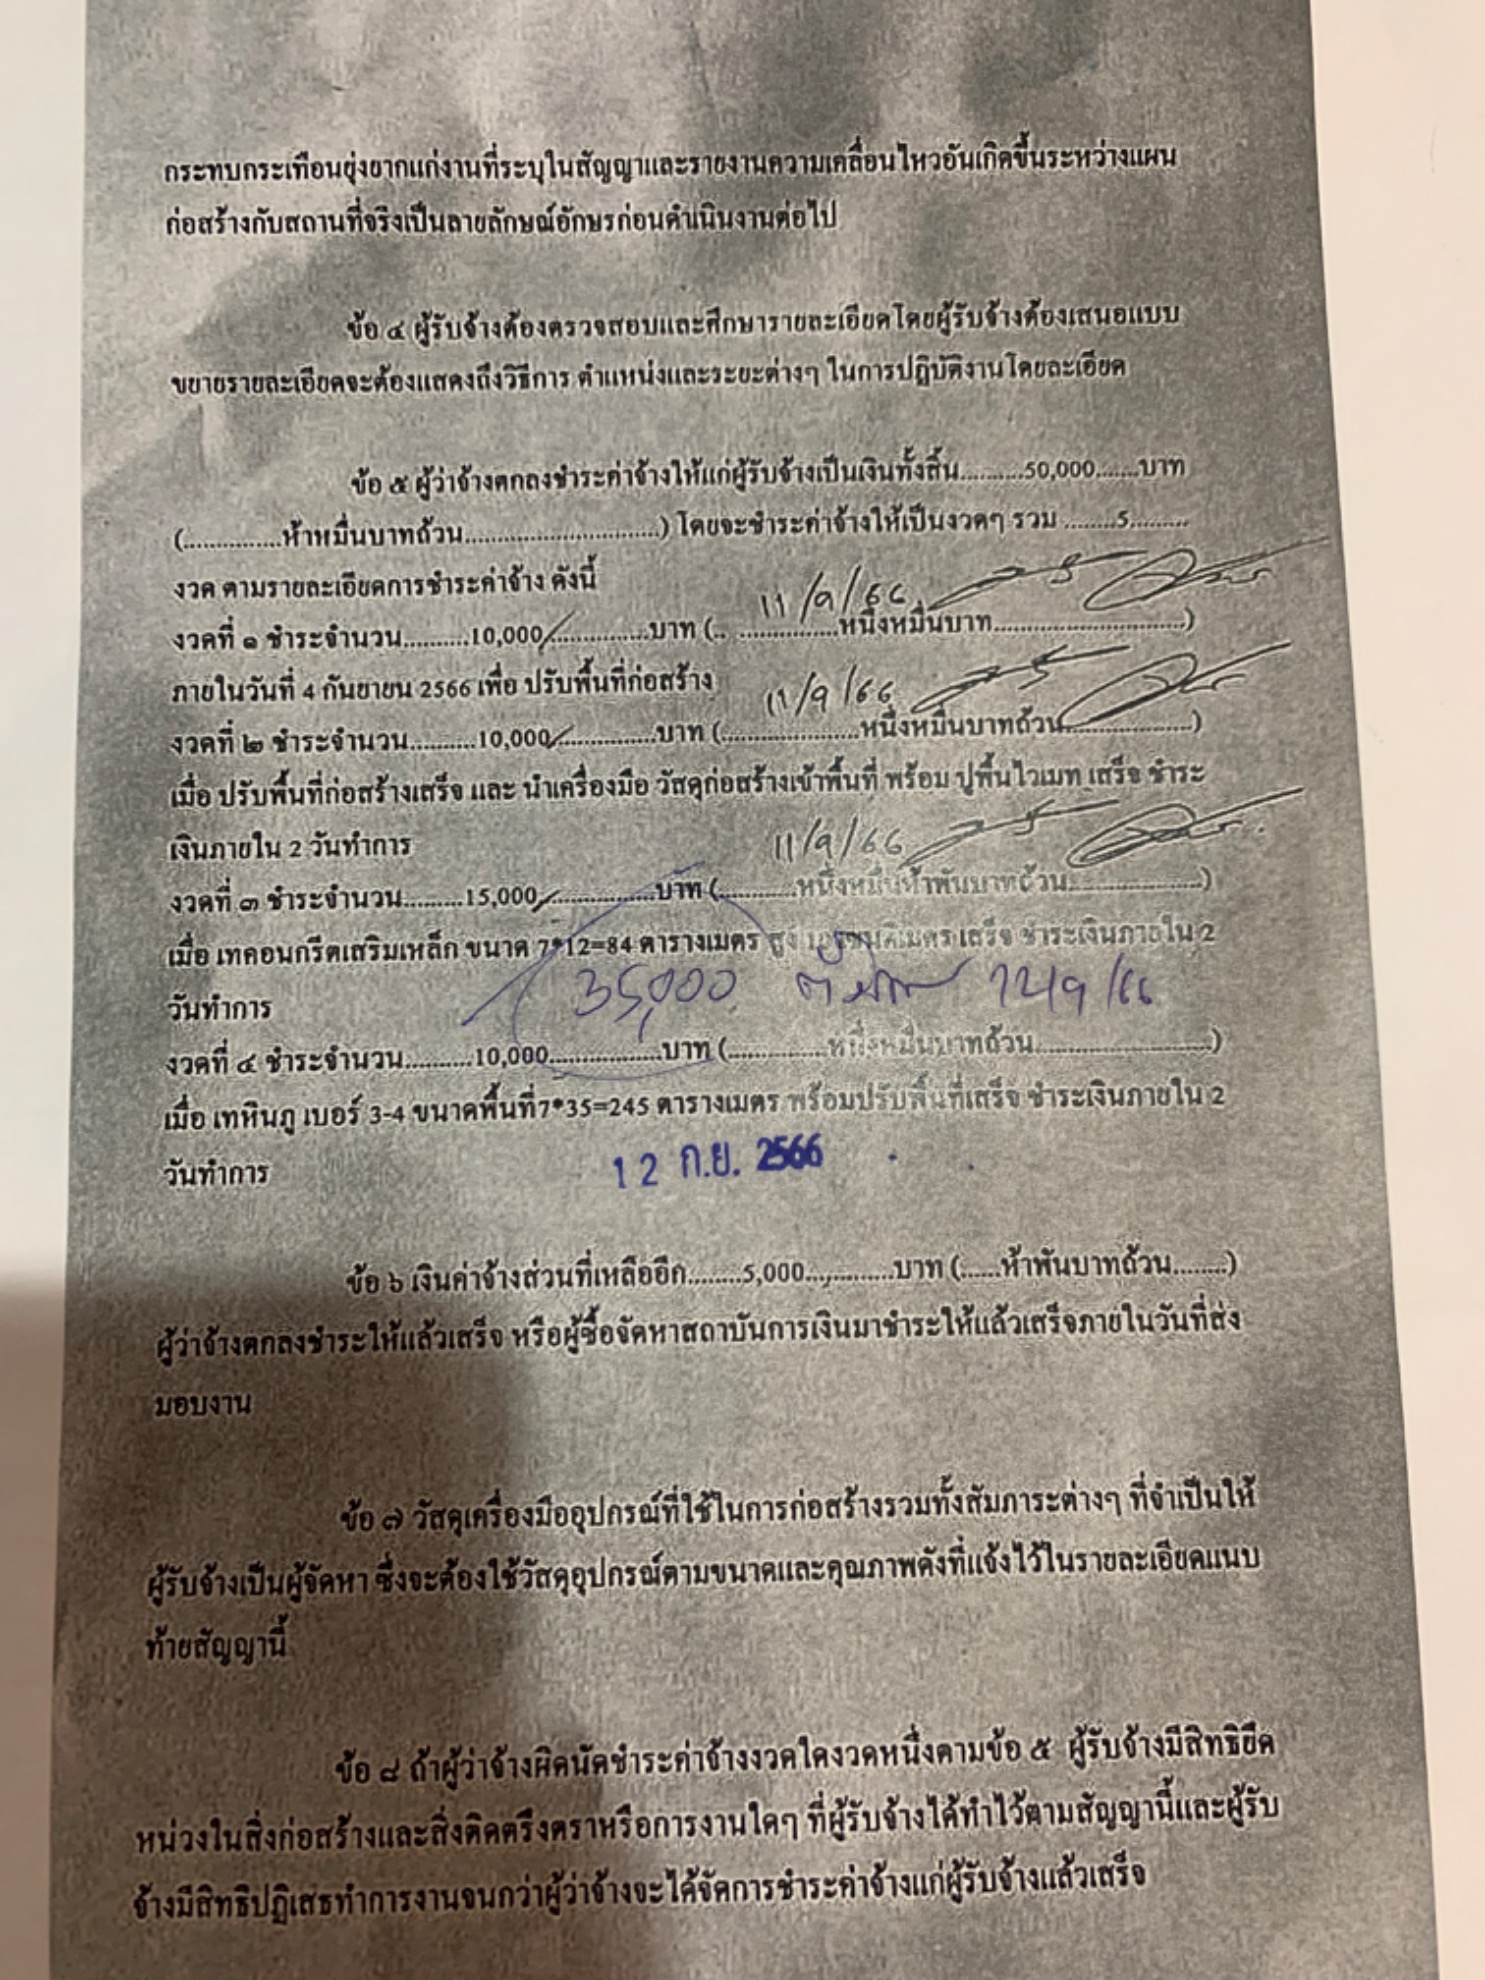 กระทบกระเทือนยุ่งยากแก่งานที่ระบุในสัญญาและรายงานความเคลื่อนไหวอันเกิดขึ้นระหว่างแผน
ก่อสร้างกับสถานที่จริงเป็นลายลักษณ์อักษรก่อนดำเนินงานต่อไป
ข้อ ๔ ผู้รับจ้างต้องตรวจสอบและศึกษารายละเอียดโดยผู้รับจ้างต้องเสนอแบบ
ขยายรายละเอียดจะต้องแสดงถึงวิธีการ ตำแหน่งและระยะต่างๆ ในการปฏิบัติงานโดยละเอียด
ข้อ ๕ ผู้ว่าจ้างตกลงชำระค่าจ้างให้แก่ผู้รับจ้างเป็นเงินทั้งสิ้น..........50,000.......บาท
(...............ห้าหมื่นบาทถ้วน..............................) โดยจะชำระค่าจ้างให้เป็นงวดๆ รวม ........5.........
งวด ตามรายละเอียดการชำระค่าจ้าง ดังนี้
11/9/66
งวดที่ ๑ ชำระจำนวน..........10,000/...............บาท (.. ...............หนึ่งหมื่นบาท.............................)
ภายในวันที่ 4 กันยายน 2566 เพื่อ ปรับพื้นที่ก่อสร้าง
11/9/66
งวดที่ ๒ ชำระจำนวน..........10,000/...............บาท (.....................หนึ่งหมื่นบาทถ้วน....................)
เมื่อ ปรับพื้นที่ก่อสร้างเสร็จ และ นำเครื่องมือ วัสดุก่อสร้างเข้าพื้นที่ พร้อม ปูพื้นไวเมท เสร็จ ชำระ
เงินภายใน 2 วันทำการ
11/9/66
งวดที่ ๓ ชำระจำนวน.........15,000/................บาท (............หนึ่งหมื่นห้าพันบาทถ้วน....................)
เมื่อ เทคอนกรีตเสริมเหล็ก ขนาด 7*12=84 ตารางเมตร สูง เซนติเมตร เสร็จ ชำระเงินภายใน 2
วันทำการ
35,000 12/9/66
งวดที่ ๔ ชำระจำนวน..........10,000.................บาท (...............หนึ่งหมื่นบาทถ้วน...........................)
เมื่อ เทหินภู เบอร์ 3-4 ขนาดพื้นที่7*35=245 ตารางเมตร พร้อมปรับพื้นที่เสร็จ ชำระเงินภายใน 2
วันทำการ
12 ก.ย. 2566
ข้อ ๖ เงินค่าจ้างส่วนที่เหลืออีก........5,000.............บาท (......ห้าพันบาทถ้วน........)
ผู้ว่าจ้างตกลงชำระให้แล้วเสร็จ หรือผู้ซื้อจัดหาสถาบันการเงินมาชำระให้แล้วเสร็จภายในวันที่ส่ง
มอบงาน
ข้อ ๗ วัสดุเครื่องมืออุปกรณ์ที่ใช้ในการก่อสร้างรวมทั้งสัมภาระต่างๆ ที่จำเป็นให้
ผู้รับจ้างเป็นผู้จัดหา ซึ่งจะต้องใช้วัสดุอุปกรณ์ตามขนาดและคุณภาพดังที่แจ้งไว้ในรายละเอียดแนบ
ท้ายสัญญานี้
ข้อ ๘ ถ้าผู้ว่าจ้างผิดนัดชำระค่าจ้างงวดใดงวดหนึ่งตามข้อ ๕ ผู้รับจ้างมีสิทธิยึด
หน่วงในสิ่งก่อสร้างและสิ่งติดตรึงตราหรือการงานใดๆ ที่ผู้รับจ้างได้ทำไว้ตามสัญญานี้และผู้รับ
จ้างมีสิทธิปฏิเสธทำการงานจนกว่าผู้ว่าจ้างจะได้จัดการชำระค่าจ้างแก่ผู้รับจ้างแล้วเสร็จ